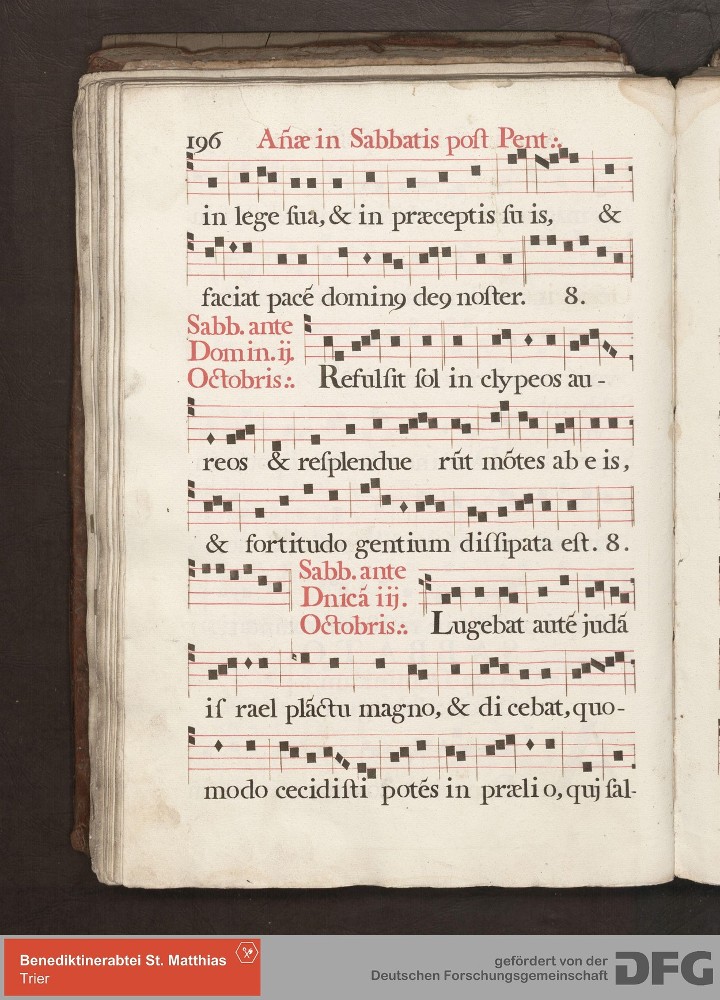 196 Añæ in Sabbatis poſt Pent:.
in lege ſua, & in præceptis ſu is, &
faciat pacẽ domin9 de9 noſter. 8.
Sabb. ante
Domin. ij.
Octobris:.
Refulſit ſol in clypeos au-
reos & reſplendue rũt mõtes ab e is,
& fortitudo gentium diſſipata eſt. 8.
Sabb. ante
Dnicã iij.
Octobris:.
Lugebat autẽ judã
iſ rael plãctu magno, & di cebat, quo-
modo cecidiſti potẽs in præli o, quj ſal-
Benediktinerabtei St. Matthias
Trier
gefördert von der
Deutschen Forschungsgemeinschaft
DFG